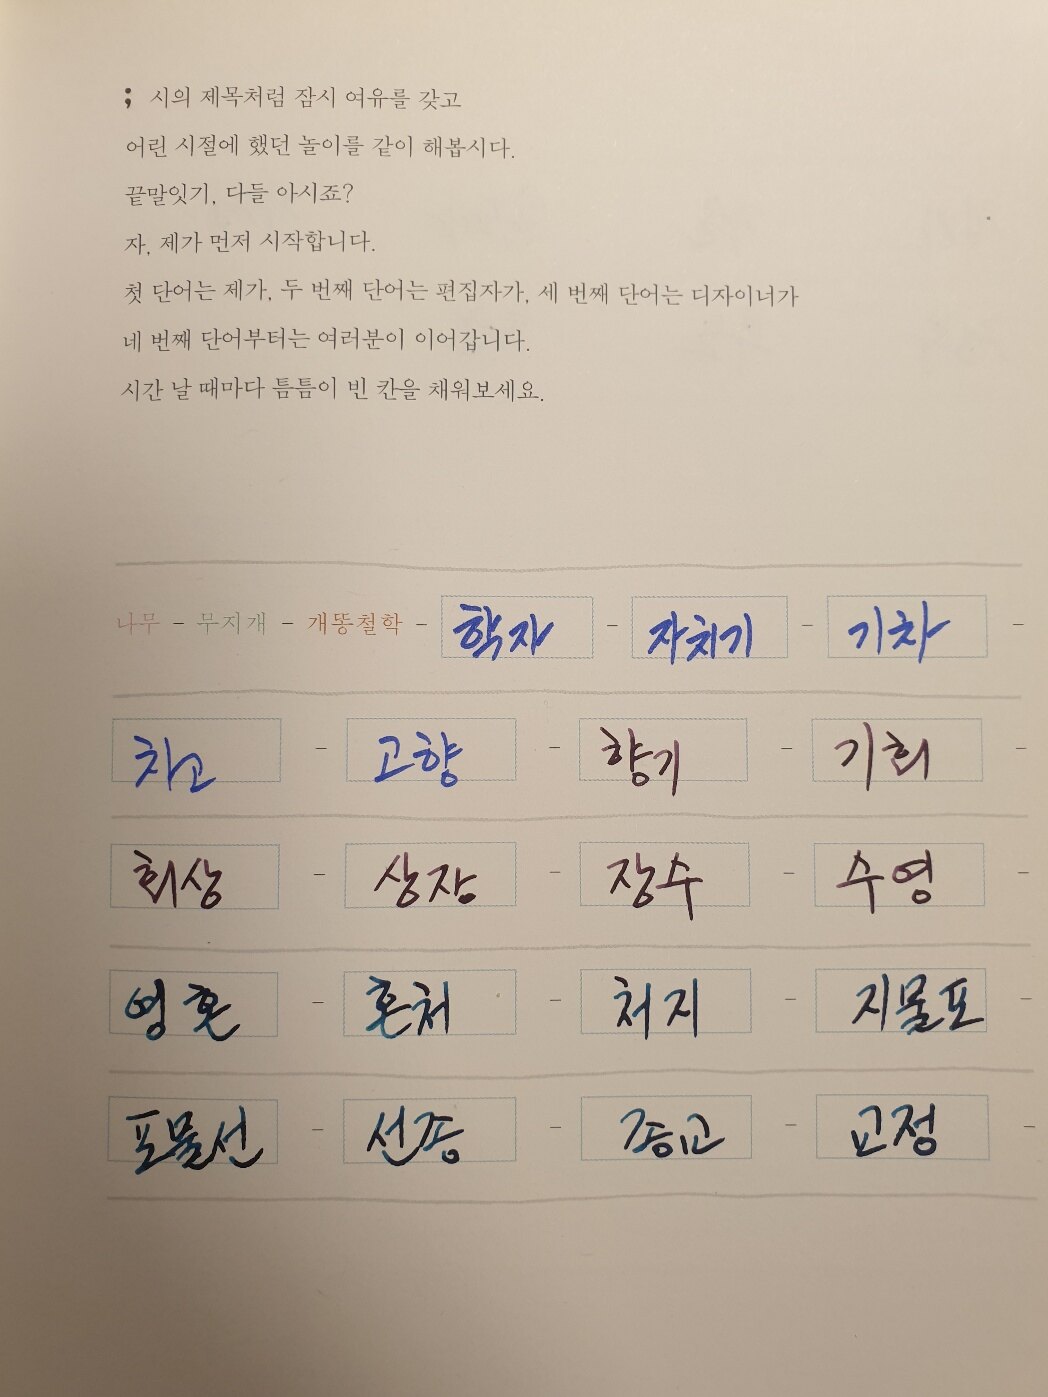 ; 시의 제목처럼 잠시 여유를 갖고
어린 시절에 했던 놀이를 같이 해봅시다.
끝말잇기, 다들 아시죠?
자, 제가 먼저 시작합니다.
첫 단어는 제가, 두 번째 단어는 편집자가, 세 번째 단어는 디자이너가
네 번째 단어부터는 여러분이 이어갑니다.
시간 날 때마다 틈틈이 빈 칸을 채워보세요.
나무 - 무지개 - 개똥철학 - 학자 - 자치기 - 기차 -
차고 - 고향 - 향기 - 기회 -
회상 - 상장 - 장수 - 수영 -
영혼 - 혼처 - 처지 - 지물포 -
포물선 - 선종 - 종교 - 교정 -